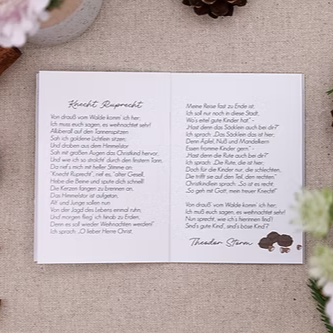 Knecht Ruprecht
Von drauß' vom Walde komm' ich her;
Ich muss euch sagen, es weihnachtet sehr!
Allüberall auf den Tannenspitzen
Sah ich goldene Lichtlein sitzen;
Und droben aus dem Himmelstor
Sah mit großen Augen das Christkind hervor;
Und wie ich so strolcht' durch den finstern Tann,
Da rief's mich mit heller Stimme an:
"Knecht Ruprecht", rief es, "alter Gesell,
Hebe die Beine und spute dich schnell!
Die Kerzen fangen zu brennen an,
Das Himmelstor ist aufgetan,
Alt' und Junge sollen nun
Von der Jagd des Lebens einmal ruhn;
Und morgen flieg' ich hinab zu Erden,
Denn es soll wieder Weihnachten werden!"
Ich sprach: „O lieber Herre Christ
Meine Reise fast zu Ende ist.
Ich soll nur noch in diese Stadt,
Wo's eitel gute Kinder hat". -
„Hast denn das Säcklein auch bei dir?"
Ich sprach: „Das Säcklein das ist hier;
Denn Äpfel, Nuß und Mandelkern
Essen fromme Kinder gern". -
„Hast denn die Rute auch bei dir?"
Ich sprach: „Die Rute, die ist hier;
Doch für die Kinder nur, die schlechten,
Die trifft sie auf den Teil, den rechten."
Christkindlein sprach: „So ist es recht;
So geh mit Gott, mein treuer Knecht!"
Von drauß' vom Walde komm' ich her;
Ich muß euch sagen, es weihnachtet sehr!
Nun sprecht, wie ich's hierinnen find!
Sind's gute Kind', sind's böse Kind'?
Theodor Storm